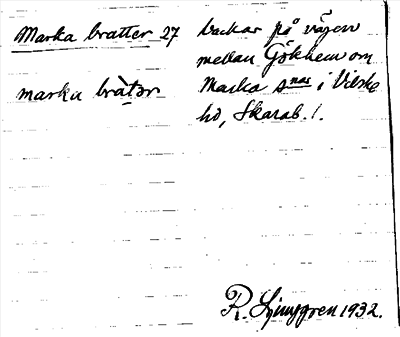 Marka bratter 27
marka bràtər
backar på vägen
mellan Gökhem och
Marka snar i Vilske
hd, Skarab. l.
R. Ljunggren 1932.